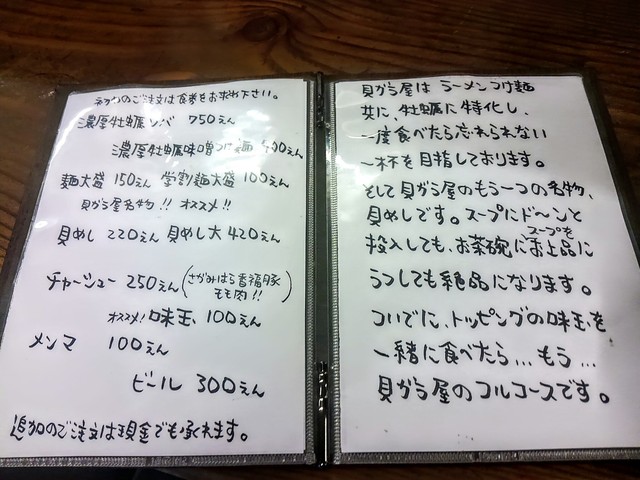 初めのご注文は食券をお求め下さい。
濃厚牡蠣ソバ 750えん
濃厚牡蠣味噌つけ麺 00えん
麺大盛 150えん 学割麺大盛 100えん
貝がら屋名物!! オススメ!!
貝めし 220えん 貝めし大 420えん
チャーシュー 250えん (さがみはら香福豚 もも肉!!)
オススメ! 味玉 100えん
メンマ 100えん
ビール 300えん
追加のご注文は現金でも承れます。
貝がら屋は ラーメンつけ麺
共に、牡蠣に特化し、
一度食べたら忘れられない
一杯を目指しております。
そして貝がら屋のもう一つの名物、
貝めしです。スープにド〜ンと
投入しても、お茶碗にスープをお上品に
うつしても絶品になります。
ついでに、トッピングの味玉を
一緒に食べたら…もう…
貝がら屋のフルコースです。